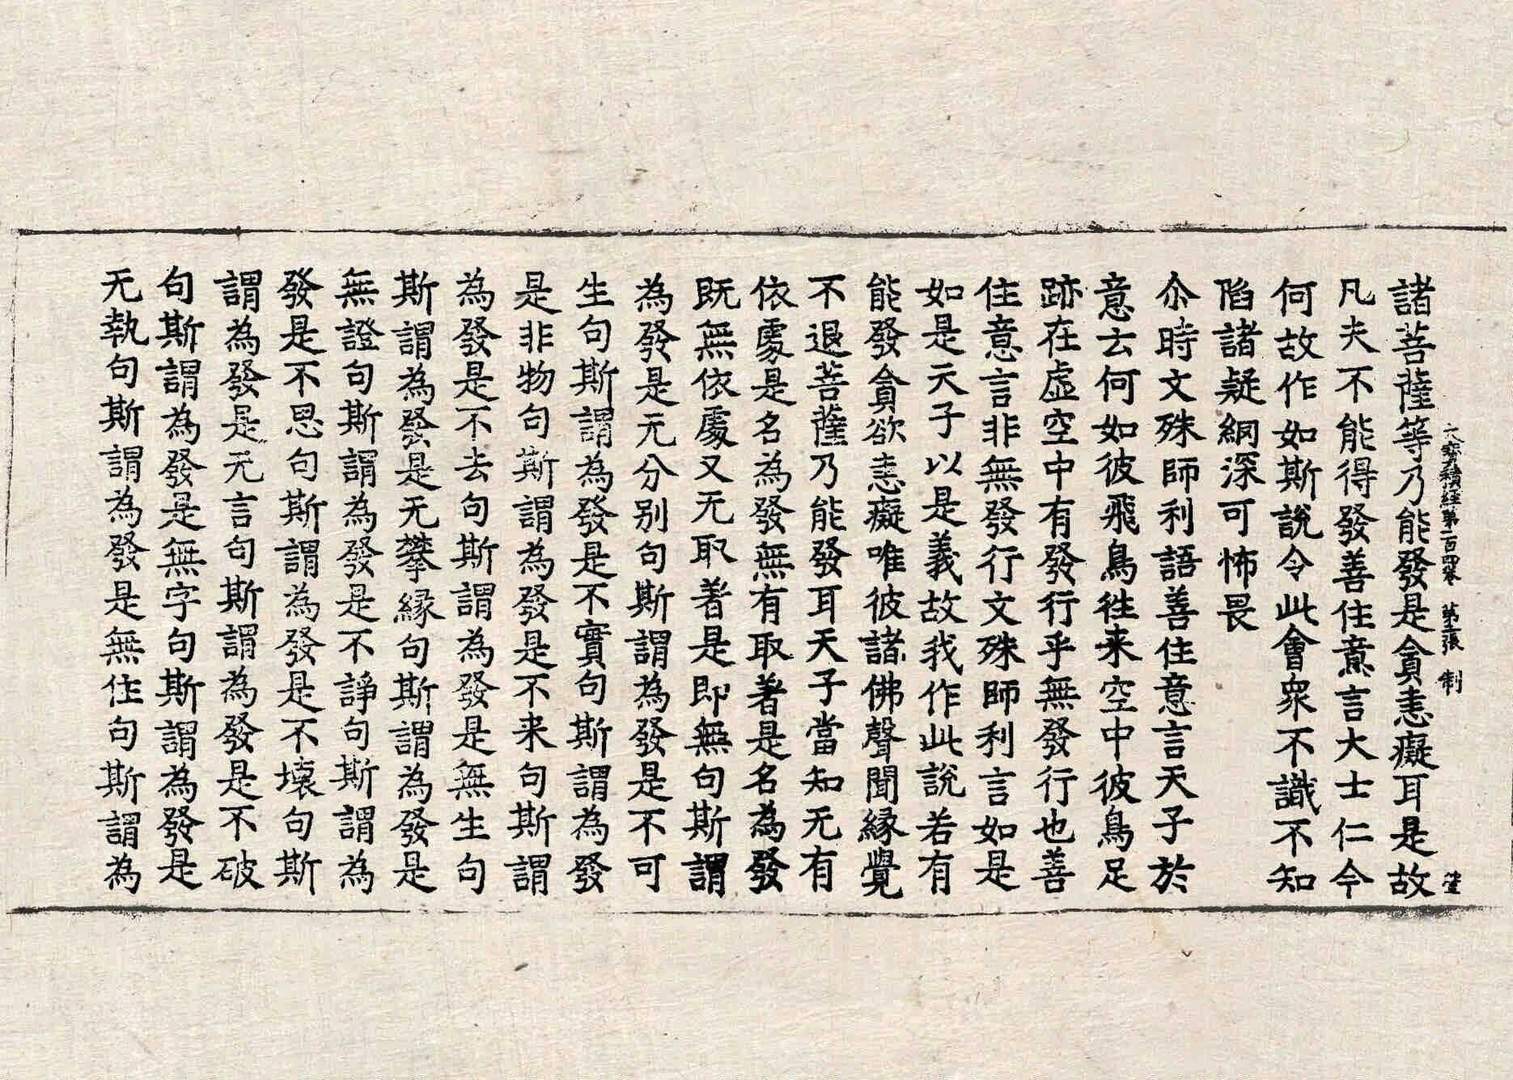 大寳積經第一百四卷 第二張 制
諸菩薩等乃能發是貪恚癡耳是故
凡夫不能得發善住意言大士仁今
何故作如斯說令此會衆不識不知
陷諸疑網深可怖畏
尒時文殊師利語善住意言天子於
意云何如彼飛鳥往来空中彼鳥足
跡在虛空中有發行乎無發行也善
住意言非無發行文殊師利言如是
如是天子以是義故我作此說若有
能發貪欲恚癡唯彼諸佛聲聞緣覺
不退菩薩乃能發耳天子當知无有
依處是名為發無有取著是名為發
既無依處又无取著是即無句斯謂
為發是无分别句斯謂為發是不可
生句斯謂為發是不實句斯謂為發
是非物句斯謂為發是不来句斯謂
為發是不去句斯謂為發是無生句
斯謂為發是无攀緣句斯謂為發是
無證句斯謂為發是不諍句斯謂為
發是不思句斯謂為發是不壞句斯
謂為發是无言句斯謂為發是不破
句斯謂為發是無字句斯謂為發是
无執句斯謂為發是無住句斯謂為